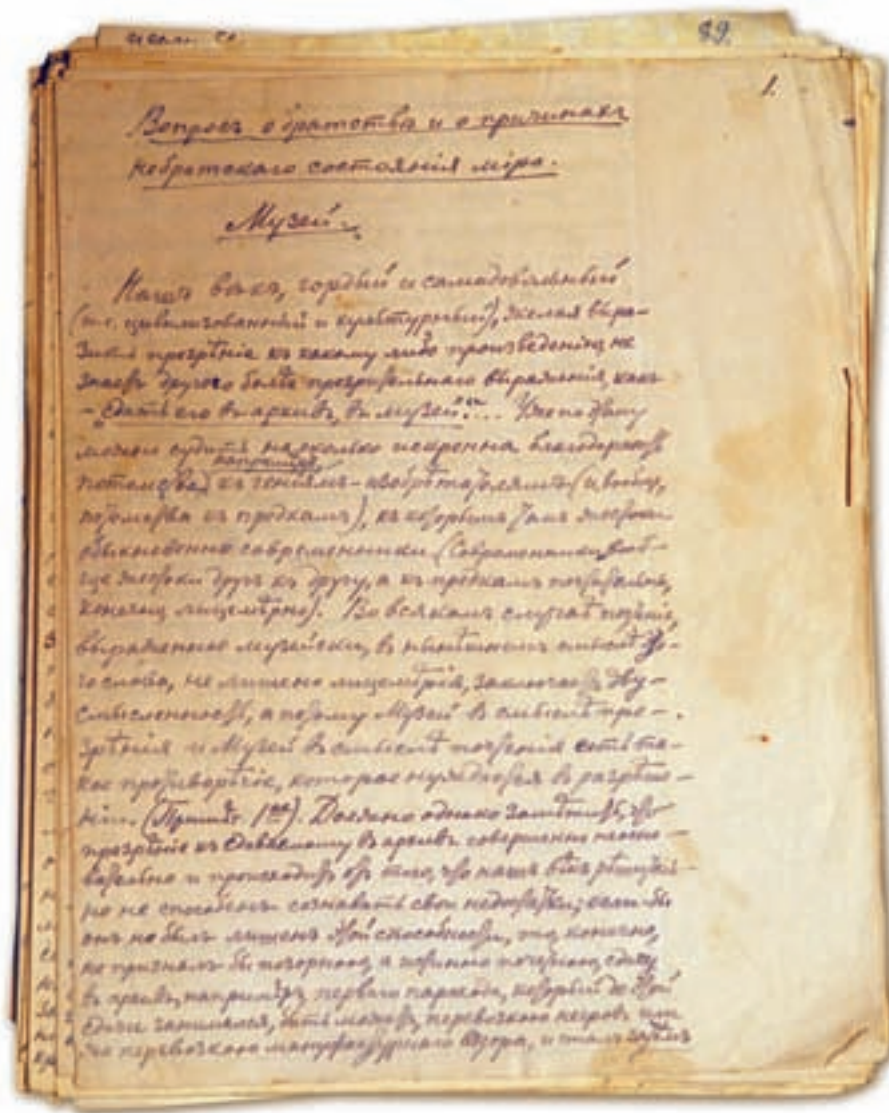 89.
1.
Вопросъ о братствѣ и о причинахъ
небратскаго состоянія міра.
Музей.
Нашъ вѣкъ, гордый и самодовольный
(т.е. цивилизованный и культурный), желая выра-
зить презрѣніе къ какому либо произведенію, не
знаетъ другого болѣе презрительнаго выраженія, какъ
— „сдать его въ архивъ, въ музей“... Уже по этому
можно судить, насколько искренна благодарность
потомства къ геніямъ-изобрѣтателямъ (и вообще,
потомства къ предкамъ), къ которымъ такъ жестоки
обыкновенно современники (Современники вооб-
ще жестоки другъ къ другу, а къ предкамъ почтительны,
конечно лицемѣрно). Во всякомъ случаѣ почтеніе,
выраженное музейски, въ нынѣшнемъ смыслѣ э-
го слова, не лишено лицемѣрія, заключаетъ дву-
смысленность, а потому Музей въ смыслѣ пре-
зрѣнія и Музей въ смыслѣ почтенія есть та-
кое противорѣчіе, которое нуждается въ разрѣше-
ніи. (Примѣч. 1ое). Должно однако замѣтить, что
презрѣніе къ сдаваемому въ архивъ совершенно неосно-
вательно и происходитъ отъ того, что нашъ вѣкъ рѣшитель-
но не способенъ сознавать свои недостатки; если бы
онъ не былъ лишенъ этой способности, то, конечно,
не призналъ бы позорною, а почетною сдачу
въ архивъ, напримѣръ, перваго парохода, который до этой
сдачи занимался, быть можетъ, перевозкою негровъ или
перевозкою мануфактурнаго